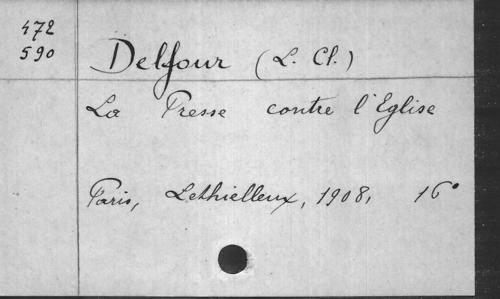 472
590
Delfour (L. Cl.)
La Presse contre l'Eglise
Paris, Lethielleux, 1908, 16°